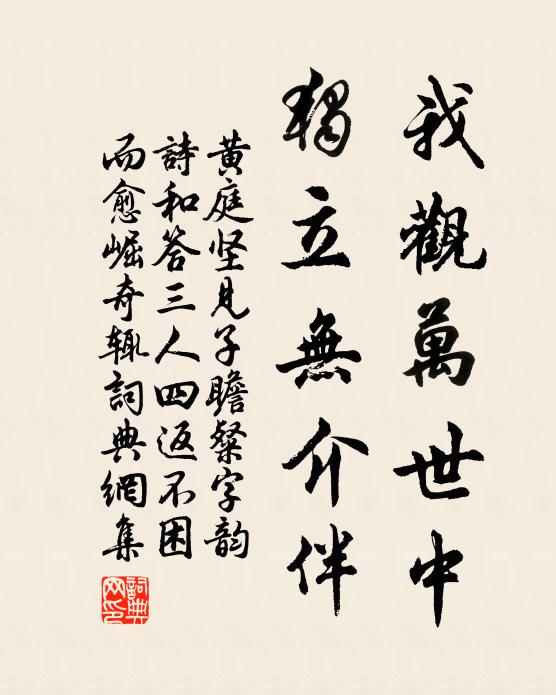 我觀萬世中
獨立無介伴
黄庭坚見子瞻粲字韵
詩和答三人四返不困
而愈崛奇辄詞典網集
詞典
网印